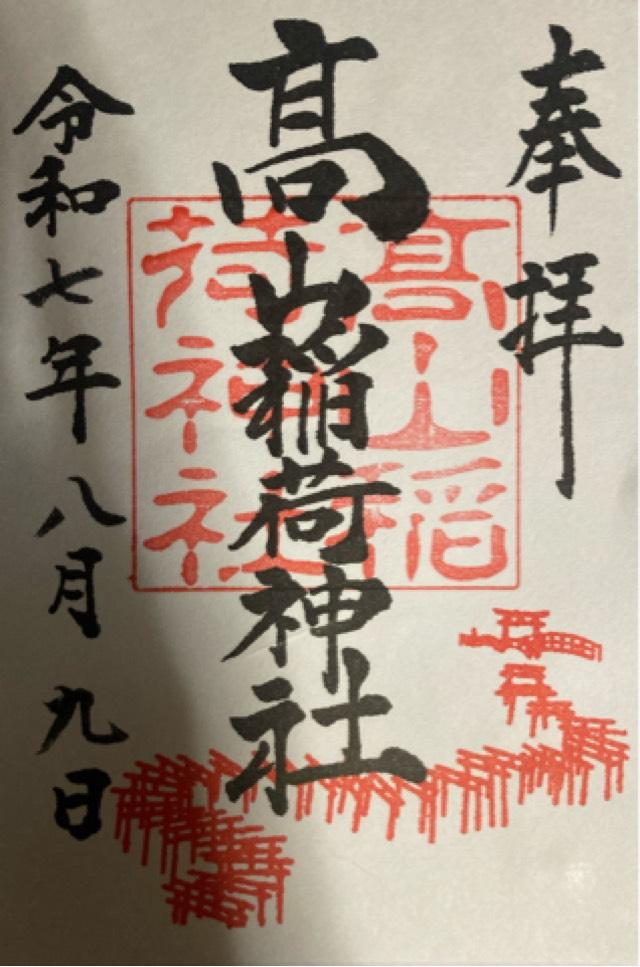 奉拝
髙山稲荷神社
髙山稲
荷神社
令和七年八月九日